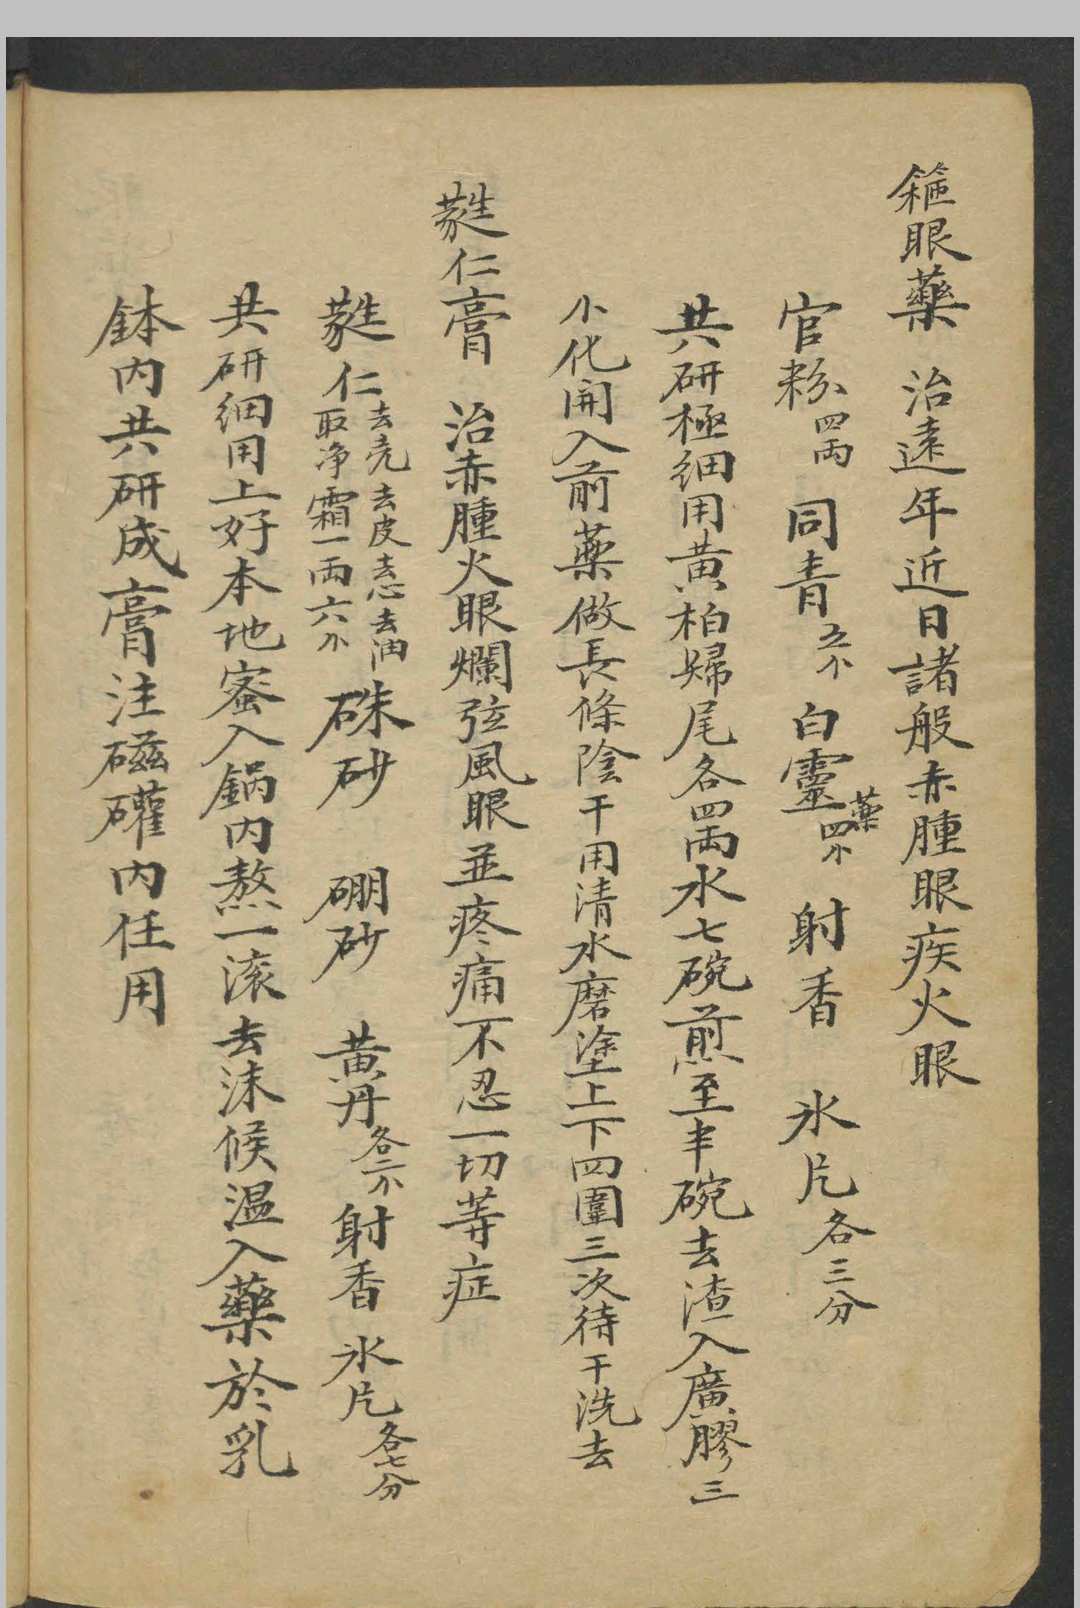 箍眼藥 治遠年近日諸般赤腫眼疾火眼
官粉四両 同青五个 白靈藥四个 射香 氷片各三分
共研極細用黄柏婦尾各四両水七碗煎至半碗去渣入廣膠三
个化開入前藥做長條陰干用清水磨塗上下四圍三次待干洗去
蕤仁膏 治赤腫火眼爛弦風眼並疼痛不忍一切等症
蕤仁去壳去皮去心去油取净霜一両六个 硃砂 硼砂 黄丹各二个 射香 氷片各七分
共研細用上好本地蜜入鍋内熬一滚去沫候温入藥於乳
鉢内共研成膏注磁礶内任用